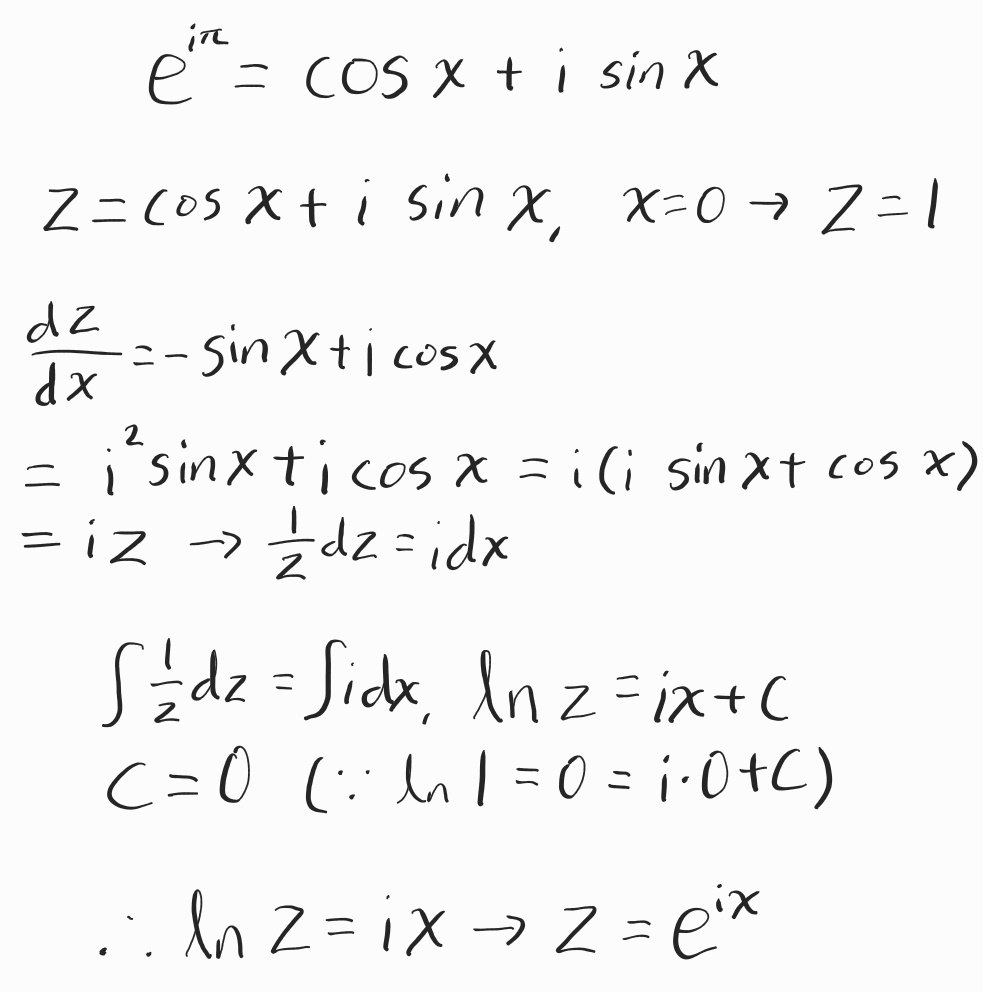 e^{iπ} = cos x + i sin x
z = cos x + i sin x, x=0 → z=1
dz/dx = - sin x + i cos x
= i² sin x + i cos x = i(i sin x + cos x)
= iz → 1/z dz = idx
∫ 1/z dz = ∫ idx, ln z = ix + C
C = 0 (∵ ln 1 = 0 = i·0+C)
∴ ln z = ix → z = e^{ix}